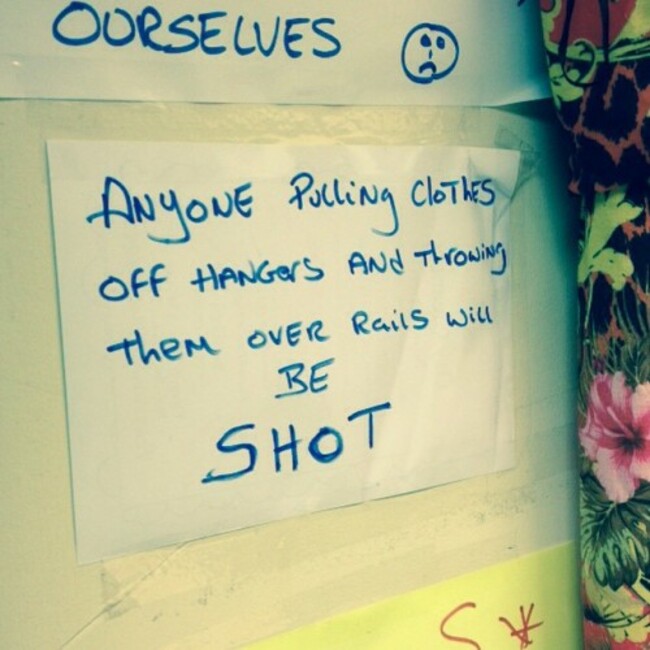 OURSELVES
ANYONE PULLING CLOTHES
OFF HANGERS AND THROWING
THEM OVER RAILS WILL
BE
SHOT
S*